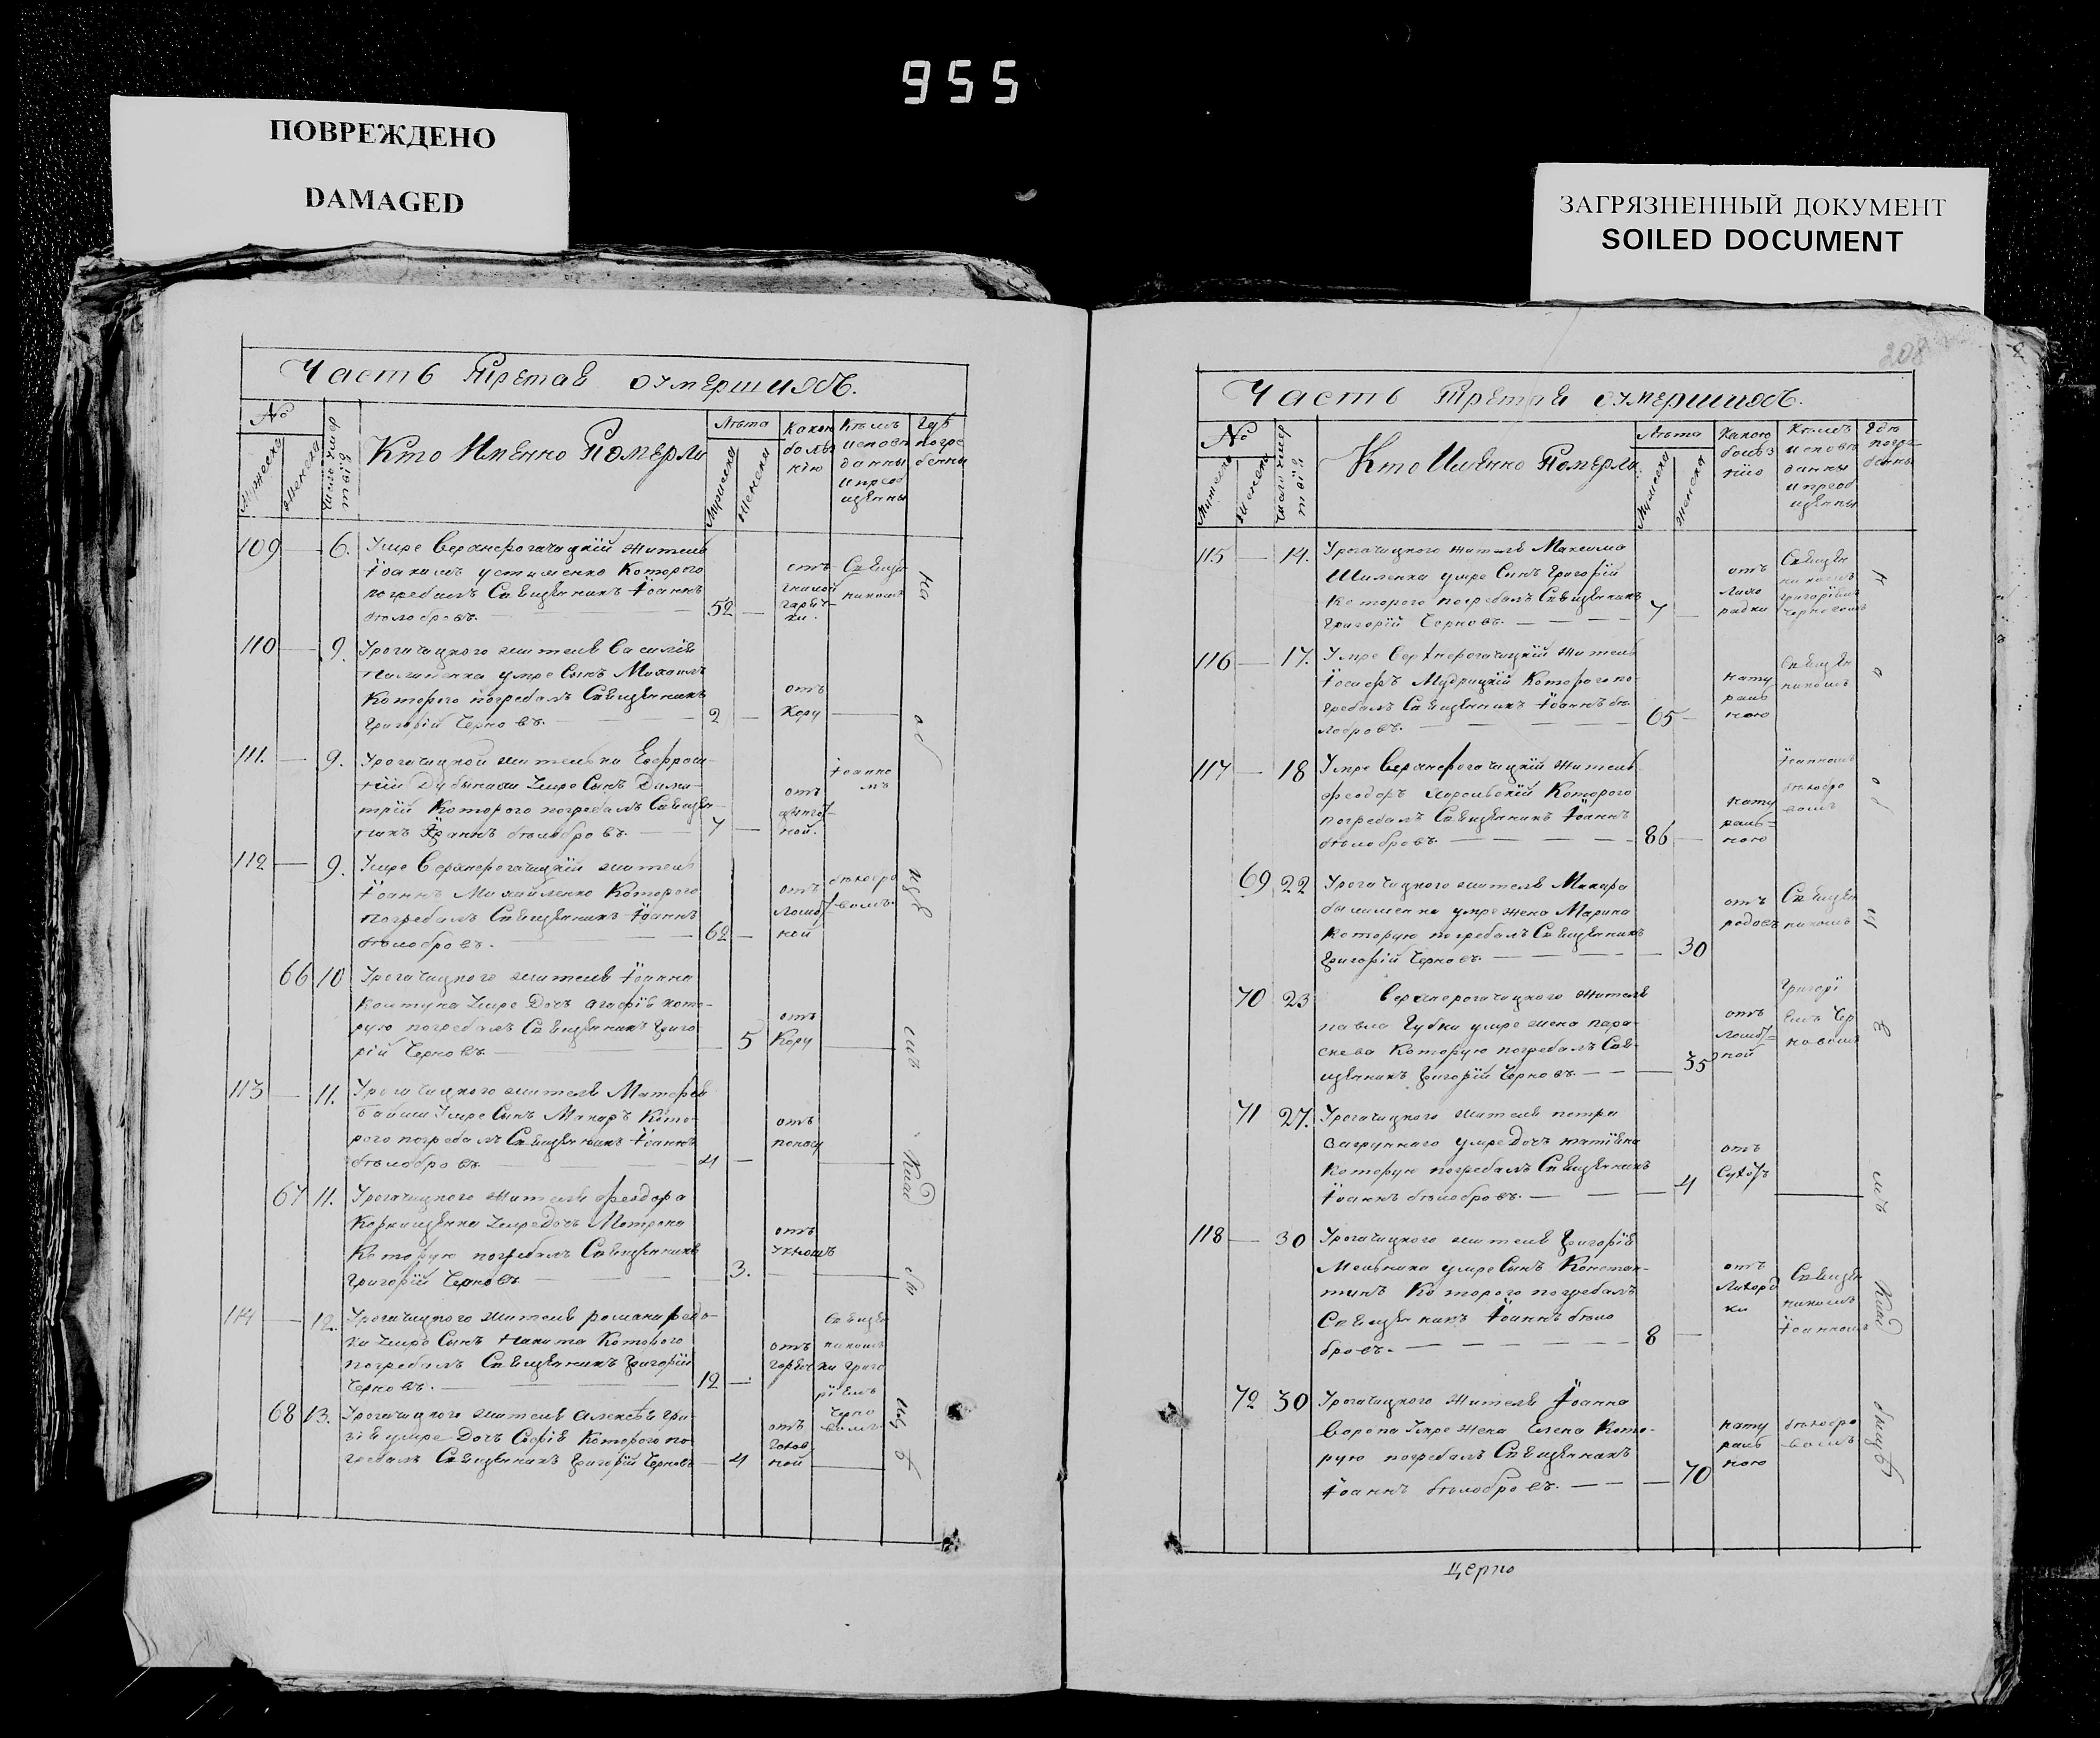 955
ПОВРЕЖДЕНО
DAMAGED
ЗАГРЯЗНЕННЫЙ ДОКУМЕНТ
SOILED DOCUMENT
Часть Третая оумершихъ.
№
Мужеска
женска
Число умер
твїй
Кто Именно Померли
Лѣта
Мужеска
женска
Какою
болѣз
нію
Кѣмъ
исповѣ
данны
и преоб
щены
Гдѣ
погре
бенны
109 — 6. Умре Верхнерогачицкїй житель
Іоакимъ устименко Которого
погребалъ Священникъ Іоаннъ
бѣлобровъ. 52 —
отъ
гнилой
горяч-
ки.
Священ
никомъ
110 — 9. Урогачицкого жителя Василія
умре Сынъ Михаилъ
Которого погребалъ Священникъ
Григорій Черновъ. 2 —
отъ
Кору
111. — 9. Урогачицкой жительки Евфроси-
нїи умре Сынъ Дими-
трїй Которого погребалъ Священ-
никъ Іоаннъ бѣлобровъ. 7 —
отъ
ной.
Іоанно
мъ
112 — 9. Умре Верхнерогачицкїй житель
Іоаннъ Михайленко Которого
погребалъ Священникъ Іоаннъ
бѣлобровъ. 62 —
отъ
ной
бѣлобро
вомъ.
66 10 Урогачицкого жителя Іоанна
Ковтуна умре Дочъ Агафія кото-
рую погребалъ Священникъ Григо
рій Черновъ — 5
отъ
Кору
113 — 11. Урогачицкого жителя Матфея
умре Сынъ Макаръ Кото-
рого погребалъ Священникъ Іоаннъ
бѣлобровъ 4 —
отъ
поносу
67 11. Урогачицкого жителя Феодора
умре Дочъ Мотрона
Которую погребалъ Священникъ
Григорїй Черновъ 3.
отъ
114 — 12. Урогачицкого жителя романа
умре Сынъ Никита Которого
погребалъ Священникъ Григорїй
Черновъ. 12 —
отъ
горяч
ки
Священ
никомъ
Григо
рїемъ
Черно
вомъ
68 13. Урогачицкого жителя Алексѣя
умре Дочъ Софія Которого по
гребалъ Священникъ Григорїй Черновъ — 4
отъ
ной
на об ще мъ Клад би щѣ
208
Часть Третая оумершихъ.
№
Мужеска
женска
Число умер
твїй
Кто Именно Померли.
Лѣта
Мужеска
женска
Какою
болѣз
нїю
Кѣмъ
исповѣ
данны
и преоб
щены
Гдѣ
погре
бенны
115 — 14. Урогачицкого жителя Максима
Шиленка умре Сынъ Григорїй
Которого погребалъ Священникъ
Григорїй Черновъ. 7 —
отъ
лихо
радки
Священ
никомъ
Григорїемъ
Черновомъ
116 — 17. Умре Верхнерогачицкїй житель
Іосифъ Мудрицкїй Которого по-
гребалъ Священникъ Іоаннъ бѣ-
лобровъ. 65 —
нату
раль
ною
Священ
никомъ
117 — 18 Умре Верхнерогачицкїй житель
феодоръ Которого
погребалъ Священникъ Іоаннъ
бѣлобровъ. 86 —
нату
раль=
ною
Іоанномъ
бѣлобро
вомъ
69 22 Урогачицкого жителя Макара
умре жена Марина
Которую погребалъ Священникъ
Григорїй Черновъ. — 30
отъ
родовъ
Священ
никомъ
70 23 Верхнерогачицкого жителя
павла Губки умре жена пара-
скева Которую погребалъ Свя-
щенникъ Григорїй Черновъ. — 35
отъ
ной
Григорї
емъ Чер
новомъ
71 27. Урогачицкого жителя петра
Загрунного умре Дочъ татїяна
Которую погребалъ Священникъ
Іоаннъ бѣлобровъ. — 4
отъ
Сухотъ
118 — 30 Урогачицкого жителя Григорїя
Мельника умре Сынъ Констан-
тинъ Которого погребалъ
Священникъ Іоаннъ бѣло
бровъ. 8 —
отъ
Лихорад
ки
Священ
никомъ
Іоанномъ
72 30 Урогачицкого жителя Іоанна
Ворона умре жена Елена Кото-
рую погребалъ Священникъ
Іоаннъ бѣлобровъ. — 70
нату
раль
ною
бѣлобро
вомъ
н а о б щ е мъ Клад бищѣ
Церко